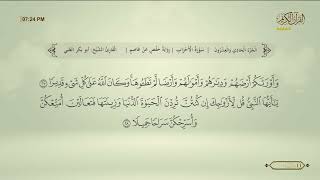 07:24 PM
القرآن الكريم
الجزء الحادي والعشرون | سورة الأحزاب | رواية حفص عن عاصم | القارئ الشيخ:
وَأَوْرَثَكُمْ أَرْضَهُمْ وَدِيَارَهُمْ وَأَمْوَالَهُمْ وَأَرْضًا لَّمْ تَطَئُوهَا وَكَانَ اللَّهُ عَلَىٰ كُلِّ شَيْءٍ قَدِيرًا ٢٧
يَا أَيُّهَا النَّبِيُّ قُل لِّأَزْوَاجِكَ إِن كُنتُنَّ تُرِدْنَ الْحَيَاةَ الدُّنْيَا وَزِينَتَهَا فَتَعَالَيْنَ أُمَتِّعْكُنَّ
وَأُسَرِّحْكُنَّ سَرَاحًا جَمِيلًا ٢٨